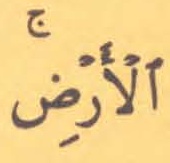 ٱلۡأَرۡضِۚ